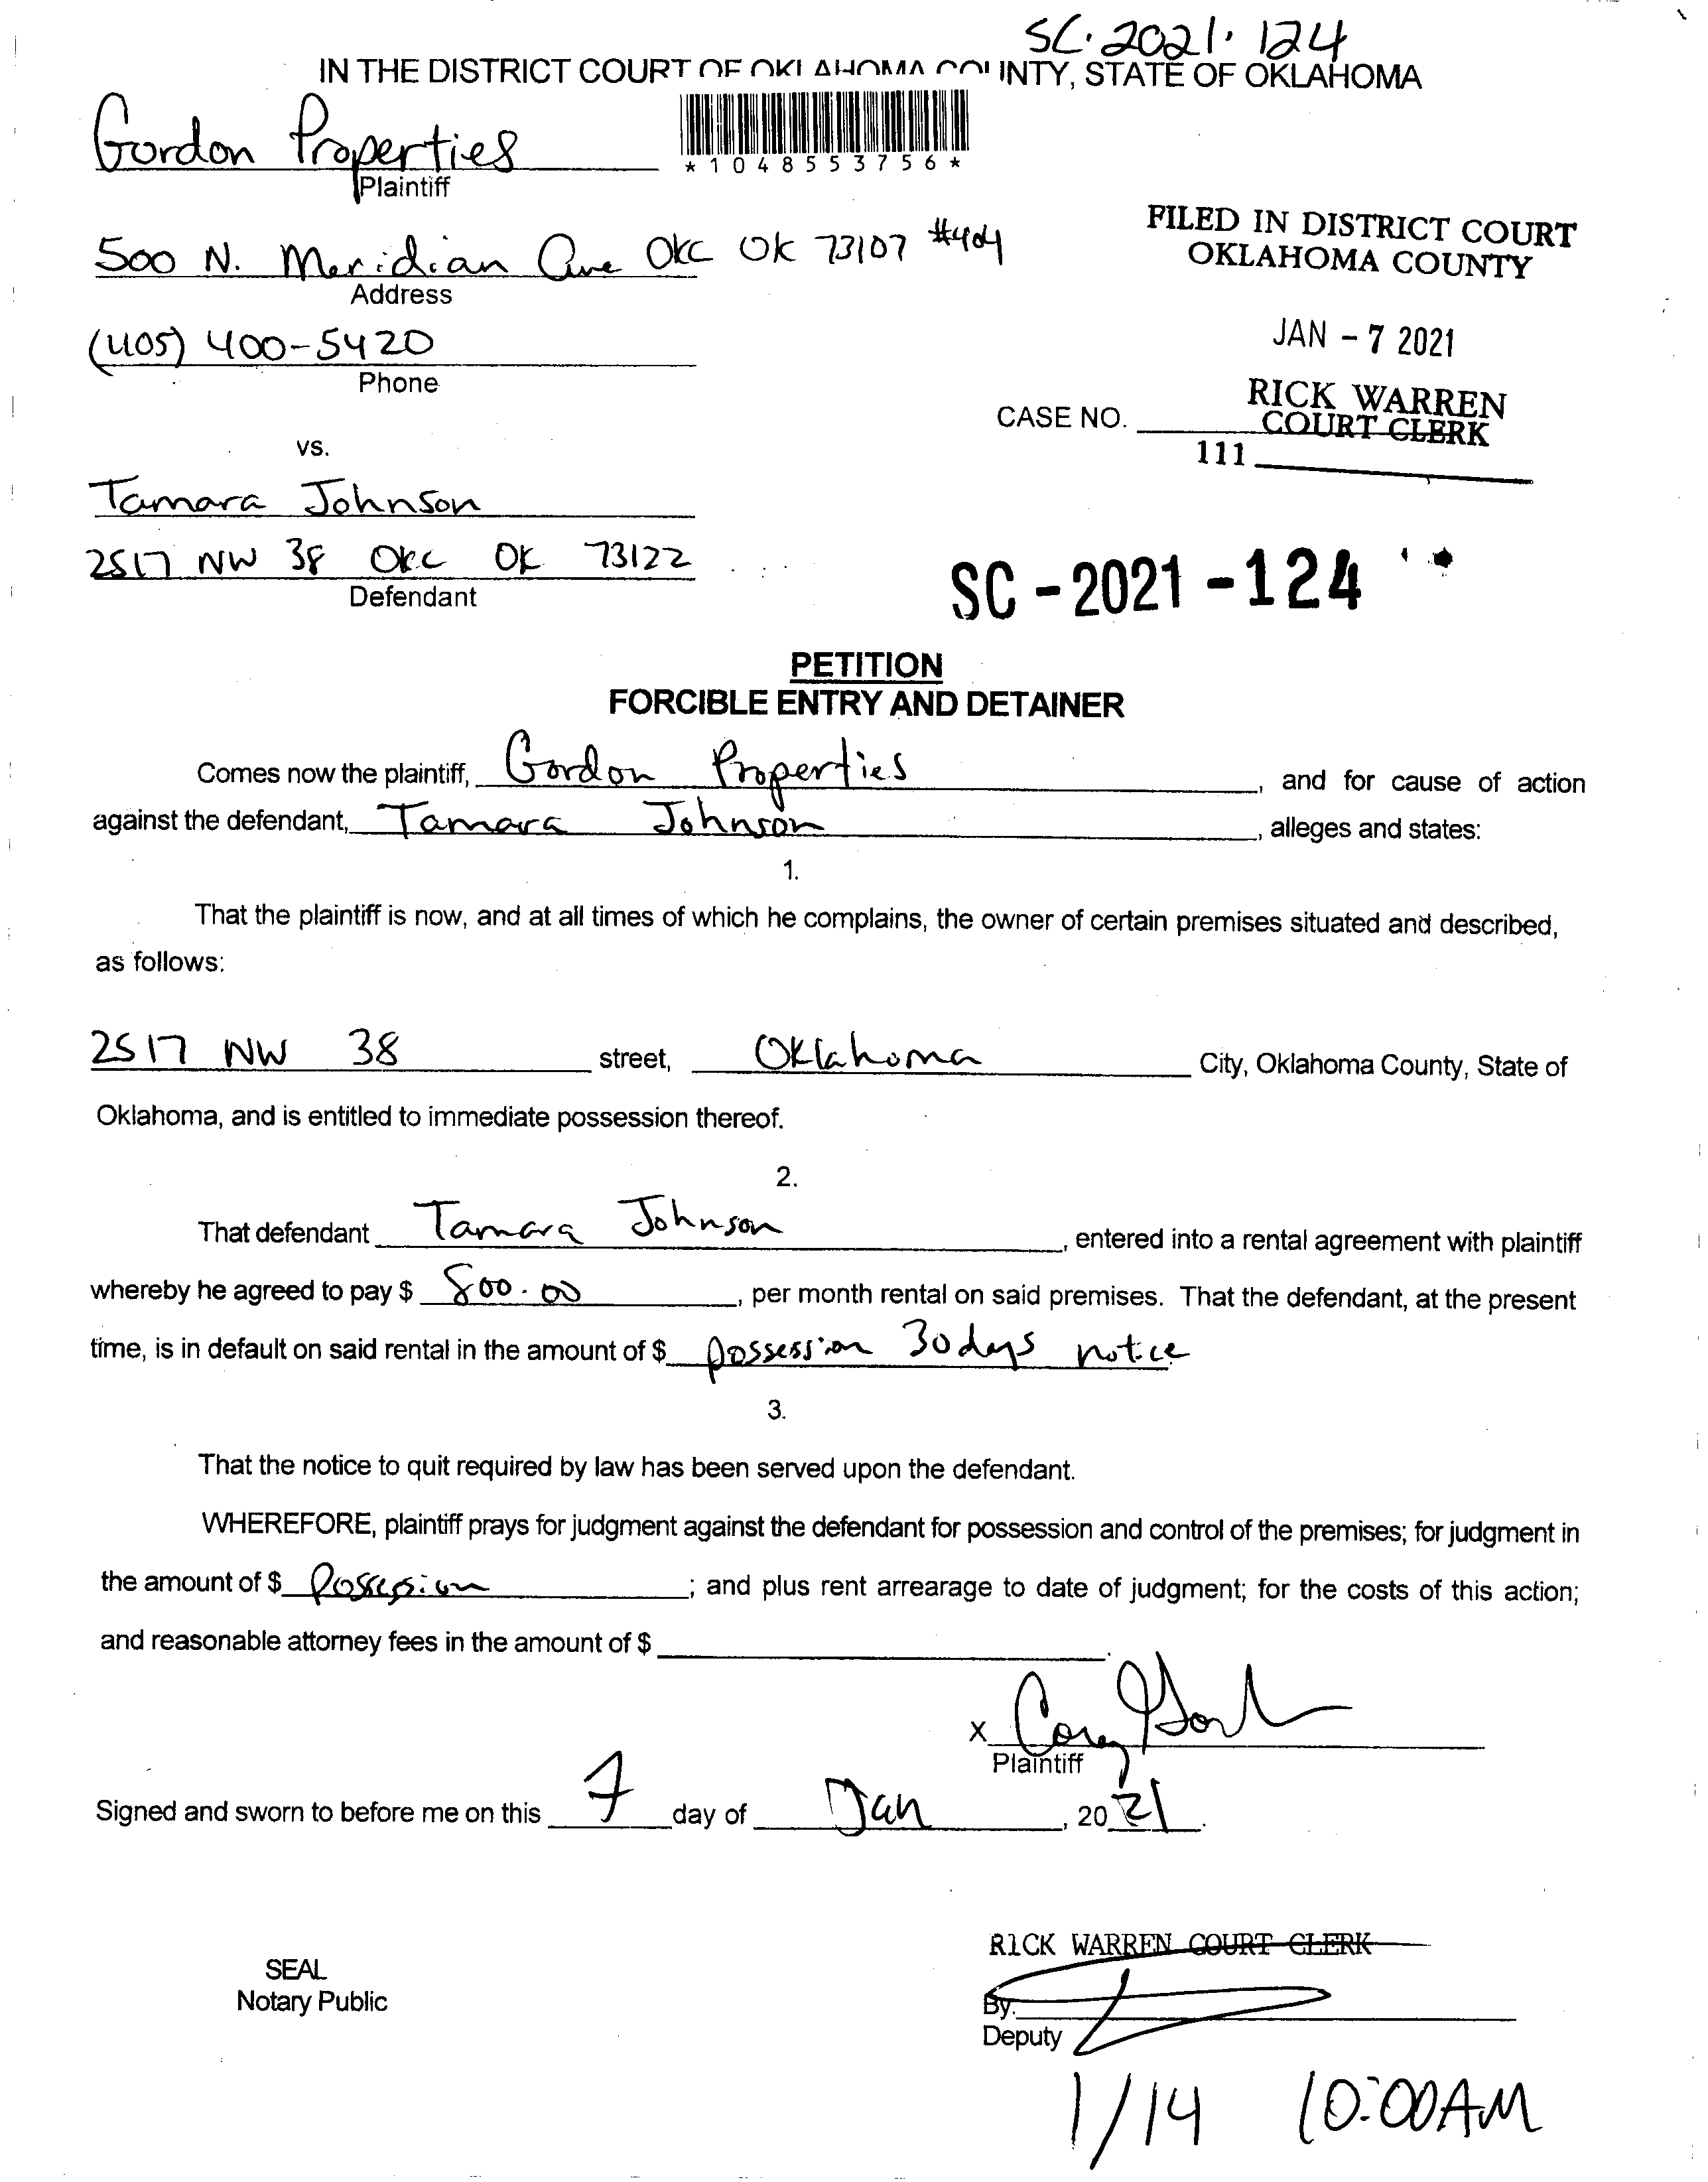 SC·2021·124
IN THE DISTRICT COURT OF OKLAHOMA COUNTY, STATE OF OKLAHOMA
Gordon Properties
*1048553756*
Plaintiff
500 N. Meridian Ave OKC OK 73107 #404
Address
FILED IN DISTRICT COURT
OKLAHOMA COUNTY
(405) 400-5420
Phone
JAN - 7 2021
RICK WARREN
COURT CLERK
CASE NO.
111
vs.
Tamara Johnson
2517 NW 38 OKC OK 73122
Defendant
SC-2021-124
PETITION
FORCIBLE ENTRY AND DETAINER
Comes now the plaintiff, Gordon Properties, and for cause of action
against the defendant, Tamara Johnson, alleges and states:
1.
That the plaintiff is now, and at all times of which he complains, the owner of certain premises situated and described,
as follows:
2517 NW 38 street, Oklahoma City, Oklahoma County, State of
Oklahoma, and is entitled to immediate possession thereof.
2.
That defendant Tamara Johnson, entered into a rental agreement with plaintiff
whereby he agreed to pay $ 800.00, per month rental on said premises. That the defendant, at the present
time, is in default on said rental in the amount of $ possession 30 days notice
3.
That the notice to quit required by law has been served upon the defendant.
WHEREFORE, plaintiff prays for judgment against the defendant for possession and control of the premises; for judgment in
the amount of $ Possession; and plus rent arrearage to date of judgment; for the costs of this action;
and reasonable attorney fees in the amount of $
X Corey
Plaintiff
Signed and sworn to before me on this 7 day of Jan, 20 21.
SEAL
Notary Public
RICK WARREN COURT CLERK
By.
Deputy
1/14 10:00AM